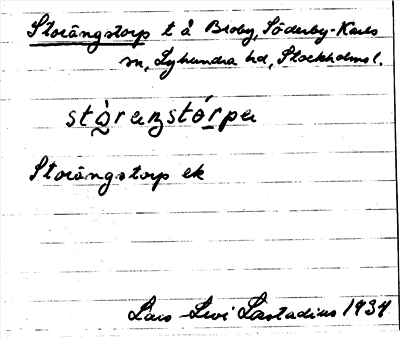 Storängstorp t å Broby, Söderby-Karls
sn, Lyhundra hd, Stockholms l.
stȯ̀raŋstɷ́rpa
Storängstorp ek
Lars-Levi Læstadius 1934